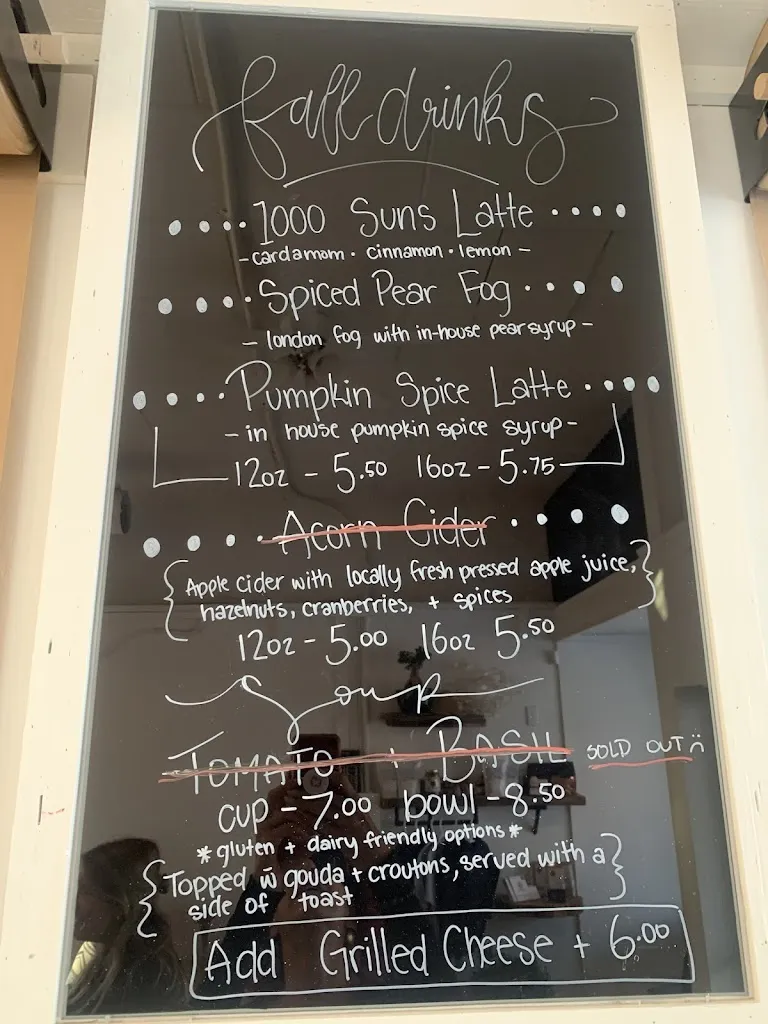 fall drinks
1000 Suns Latte
-cardamom · cinnamon · lemon -
Spiced Pear Fog
- london fog with in-house pear syrup -
Pumpkin Spice Latte
- in house pumpkin spice syrup -
12oz - 5.50 16oz - 5.75
Acorn Cider
{Apple cider with locally fresh pressed apple juice,
hazelnuts, cranberries, + spices}
12oz - 5.00 16oz 5.50
Soup
TOMATO + BASIL SOLD OUT
cup - 7.00 bowl - 8.50
*gluten + dairy friendly options*
{Topped w̄ gouda + croutons, served with a
side of toast}
Add Grilled Cheese + 6.00